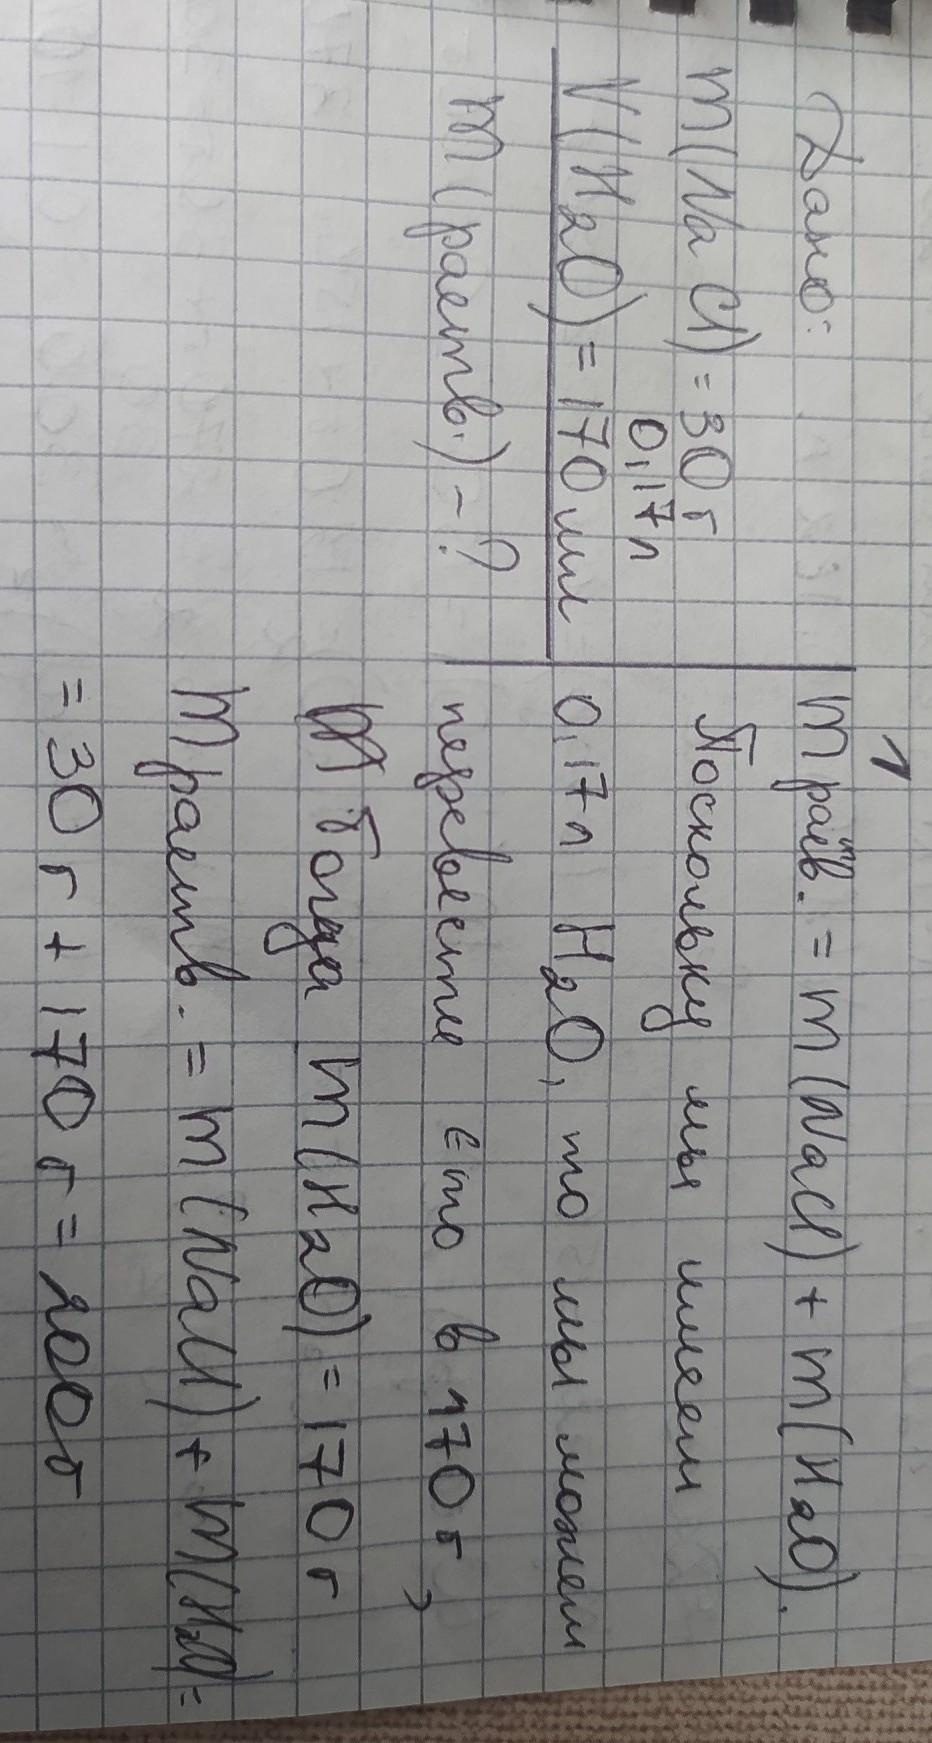 1
Дано:
m(NaCl) = 30 г
0,17л
V(H2O) = 170 мл
m(раств.) - ?
m раств. = m(NaCl) + m(H2O).
Поскольку мы имеем
0,17л H2O, то мы можем
перевести его в 170 г,
Тогда m(H2O) = 170 г
m раств. = m(NaCl) + m(H2O) =
= 30 г + 170 г = 200г